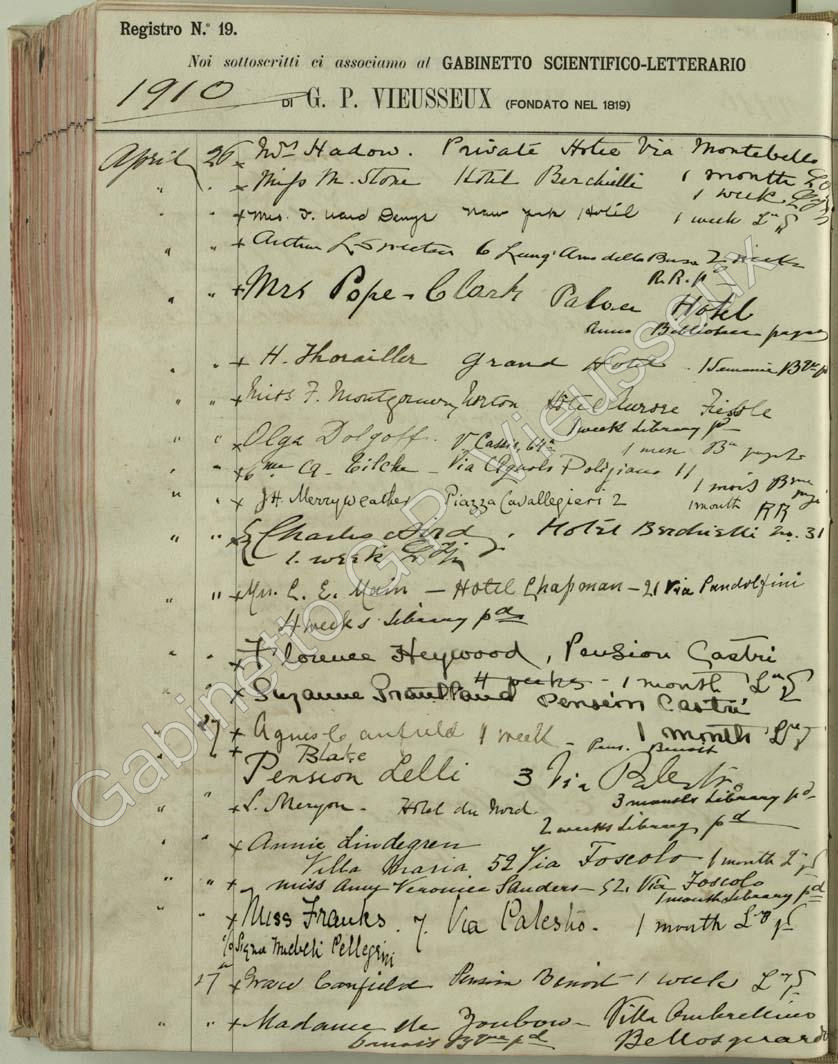 Registro N.º 19.
Noi sottoscritti ci associamo al GABINETTO SCIENTIFICO-LETTERARIO
1910 DI G. P. VIEUSSEUX (FONDATO NEL 1819)
April 26 Mrs Hadow. Private Hotel Via Montebello
" " x Miss M. Stone Hotel Berchielli 1 month
1 week
" " x Mrs. J. Ward New York Hotel 1 week
" " x Arthur 6 Lung' Arno della 2 weeks
R.R. pd
" " x Mrs Pope-Clark Palace Hotel
Bibliothèque
" " x H. Thorailler Grand Hotel. 1 Semaine
" " x Miss F. Montgomery Norton Hôtel Aurore Fiesole
1 week Library pd
" " x Olga Dolgoff. V. Cassia, 64a 1 mese
" " x Via Agnolo Poliziano 11
1 mois
" " x J. H. Merryweather Piazza Cavallegieri 2 1 month RR
" " x Charles Hotel Berchielli No. 31
1. week
" " x Mrs. C. E. Main — Hotel Chapman — 21 Via Pandolfini
4 weeks Library pd
" " x Florence Heywood, Pension Castri
4 weeks - 1 month
" " x Suzanne Pension Castri
" 27 x Agnes Canfield 1 week - 1 month
" " x Blake Pens. Benoit
Pension Lelli 3 Via Palestro
3 months Library pd
" " x S. Meryon - Hotel du Nord
2 weeks Library pd
" " x Annie Lindegren
Villa Maria 52 Via Foscolo 1 month
" " x Miss Amy Veronica Sanders - 52. Via Foscolo
1 month Library pd
" " x Miss Franks. 7. Via Palestro. 1 month
c/o Pellegrini
27 x Grace Canfield Pension Benoit 1 week
" " x Madame de Zoubow - Villa Ombrellino
6 mois Bellosguardo
Gabinetto G.P. Vieusseux